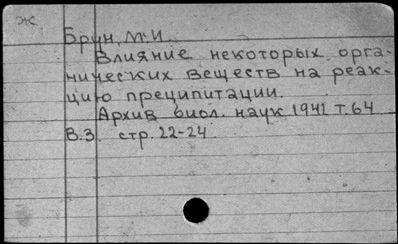 Ж
Брун, М.И.
Влияние некоторых орга-
нических веществ на реак-
цию преципитации.
Архив биол. наук 1941 т.64
В.3. стр. 22-24